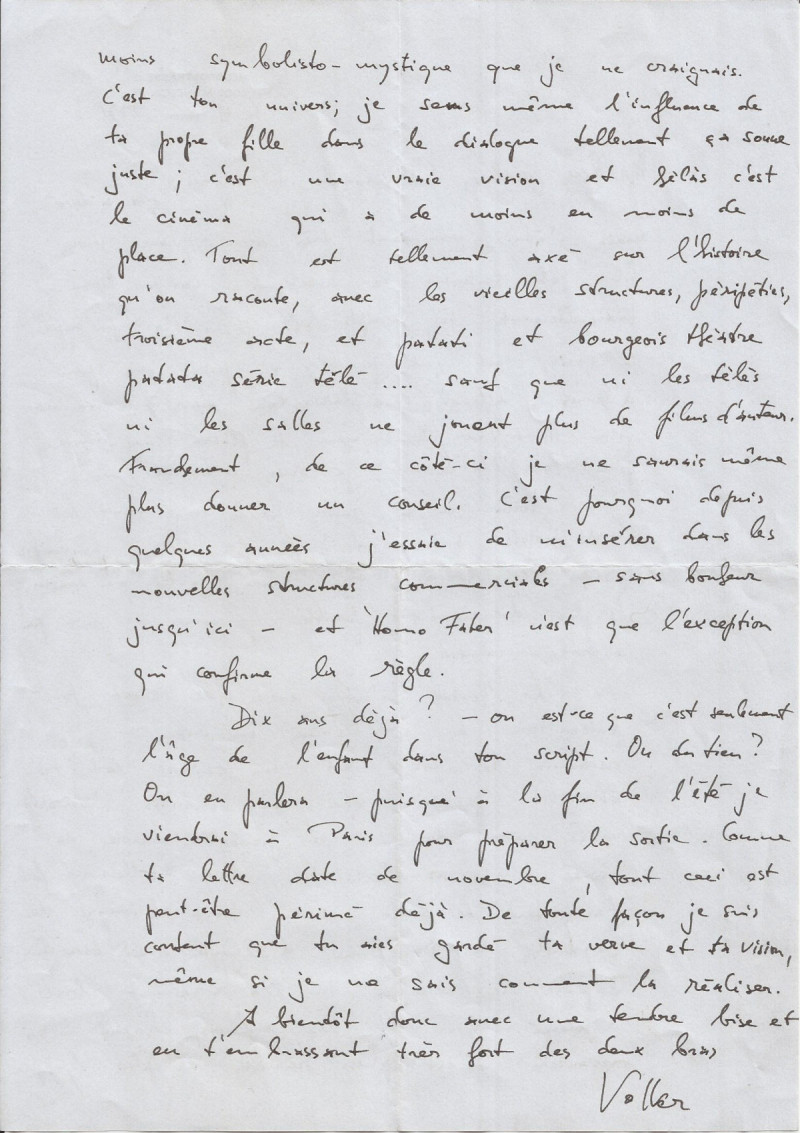 moins symbolisto-mystique que je ne craignais.
C'est ton univers; je sens même l'influence de
ta propre fille dans le dialogue tellement ça sonne
juste; c'est une vraie vision et hélàs c'est
le cinéma qui a de moins en moins de
place. Tout est tellement axé sur l'histoire
qu'on raconte, avec les vieilles structures, péripéties,
troisième acte, et patati et bourgeois théâtre
patata série télé .... sauf que ni les télés
ni les salles ne jouent plus de films d'auteur.
Franchement, de ce côté-ci je ne saurais même
plus donner un conseil. C'est pourquoi depuis
quelques années j'essaie de m'insérer dans les
nouvelles structures commerciales – sans bonheur
jusqu'ici – et 'Homo Faber' n'est que l'exception
qui confirme la règle.
Dix ans déjà? – ou est-ce que c'est seulement
l'âge de l'enfant dans ton script. Ou du tien?
On en parlera – puisqu'à la fin de l'été je
viendrai à Paris pour préparer la sortie. Comme
ta lettre date de novembre, tout ceci est
peut-être périmé déjà. De toute façon je suis
content que tu aies gardé ta verve et ta vision,
même si je ne sais comment la réaliser.
A bientôt donc avec une tendre bise et
en t'embrassant très fort des deux bras
Volker